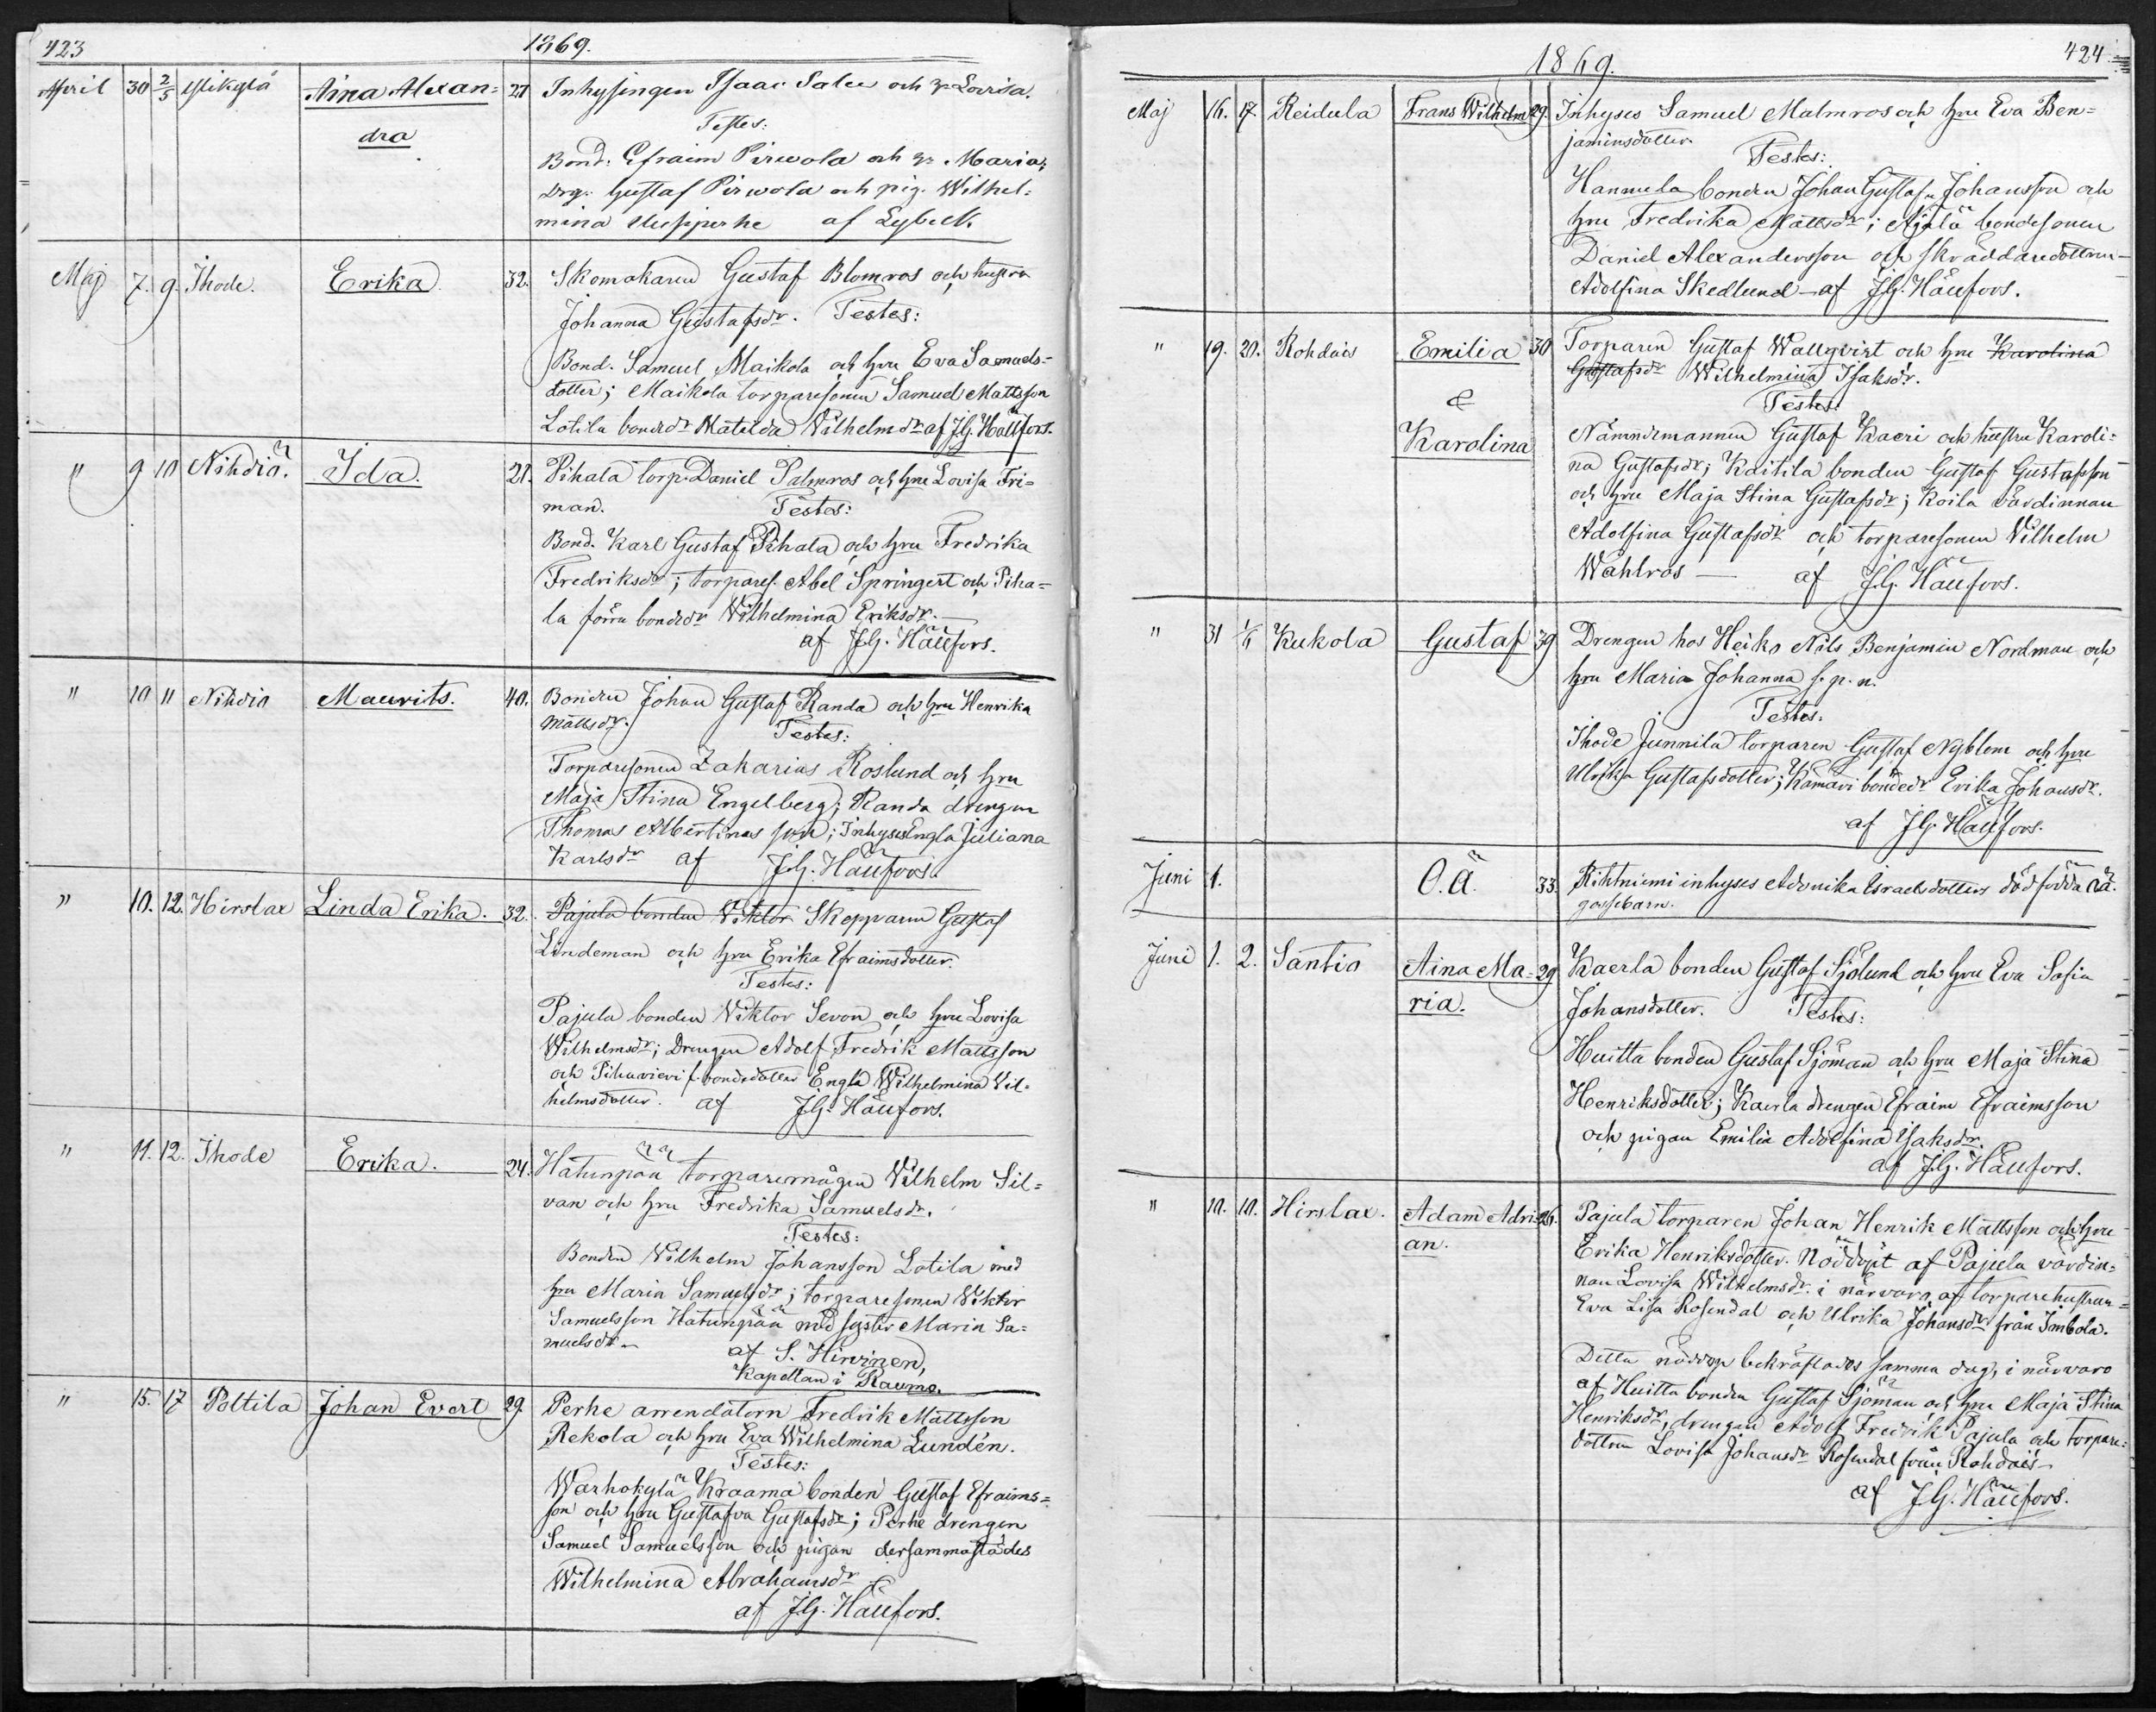 423
1869.
April 30 2/5 Aina Alexan= 27 Inhysingen Isaac Salen och h. Lovisa.
dra
Testes:
Bond. Efraim Pirwola och h. Maria;
Drg. Gustaf Pirwola och pig. Wilhel=
mina Uusiperhe af Lybeck.
Maj 7. 9. Ihode. Erika 32. Skomakaren Gustaf Blomros och hustru
Johanna Gustafsdr. Testes:
Bond. Samuel Maikola och hru Eva Samuels-
dotter; Maikola torparesonen Samuel Mattsson
Lotila bondedr Matilda Wilhelmsdr af J.G. Hällfors.
" 9 10 Nihdiö. Ida. 21. Pihala torp. Daniel Palmros och hru Lovisa Fri=
man. Testes:
Bond. Karl Gustaf Pihala och hru Fredrika
Fredriksdr; torpares. Abel Springert och Piha=
la förra bondedr Wilhelmina Eriksdr.—
af J.G. Hällfors.
" 10 11 Nihdiö Maurits. 40. Bonden Johan Gustaf Randa och hru Henrika
Mattsdr. Testes:
Torparesonen Zakarias Roslund och hru
Maja Stina Engelberg; Randa drengen
Thomas Albertinas son; Inhyses Engla Juliana
Karlsdr af J.G. Hällfors.
" 10. 12. Hirslax Linda Erika. 32. Pajula bonden Viktor Skepparen Gustaf
Lindeman och hru Erika Efraimsdotter.
Testes:
Pajula bonden Viktor Sevon och hru Lovisa
Wilhelmsdr; Drengen Adolf Fredrik Mattsson
och Pihavieri f. bondedotter Engla Wilhelmina Vil-
helmsdotter. af J.G. Hällfors.
" 11. 12. Ihode Erika. 24. Hätunpää torparemågen Wilhelm Sil=
van och hru Fredrika Samuelsdr.
Testes:
Bonden Wilhelm Johansson Lotila med
hru Maria Samuelsdr; torparesonen Viktor
Samuelsson Hätunpää med syster Maria Sa=
muelsdr — af S. Hirvinen,
Kapellan i Raumo.
" 15. 17 Polttila Johan Evert 29. Perhe arrendatorn Fredrik Mattsson
Rekola och hru Eva Wilhelmina Lundén.
Testes:
Warhokylä Kraama bonden Gustaf Efraims=
son och hru Gustafva Gustafsdr; Perhe drengen
Samuel Samuelsson och pigan dersammastädes
Wilhelmina Abrahamsdr
af J.G. Hällfors.
424
1869.
Maj 16. 17. Reidula Frans Wilhelm 29. Inhyses Samuel Malmros och hru Eva Ben=
jaminsdotter.
Testes:
Hannula bonden Johan Gustaf Johansson och
hru Fredrika Mattsdr; Äjälä bondesonen
Daniel Alexandersson och skräddaredottren
Adolfina Skedlund — af J.G. Hällfors.
" 19. 20. Rohdais Emilia 30 Torparen Gustaf Wallqvist och hru Karolina
Gustafsdr Wilhelmina Isaksdr.
& Testes:
Karolina Nämndemannen Gustaf Kaeri och hustru Karoli=
na Gustafsdr; Kaitila bonden Gustaf Gustafsson
och hru Maja Stina Gustafsdr; Koila värdinnan
Adolfina Gustafsdr och torparesonen Vilhelm
Wahlros — af J.G. Hällfors.
" 31 1/6 Kukola Gustaf 39 Drengen hos Heiko Nils Benjamin Nordman och
hru Maria Johanna s. p. n.
Testes.
Ihode Junnila torparen Gustaf Nyblom och hru
Ulrika Gustafsdotter; Kämäri bondedr Erika Johansdr.
af J.G. Hällfors.
Juni 1. O.Ä. 33. Rihtniemi inhyses Adonika Israelsdotters dödfödda oä.
gossebarn.
Juni 1. 2. Santio Aina Ma= 29 Kaerla bonden Gustaf Sjölund och hru Eva Sofia
ria. Johansdotter. Testes:
Huitta bonden Gustaf Sjöman och hru Maja Stina
Henriksdotter; Kaerla drengen Efraim Efraimsson
och pigan Emilia Adolfina Isaksdr.
af J.G. Hällfors.
" 10. 10. Hirslax. Adam Adri 26. Pajula torparen Johan Henrik Mattsson och hru
an. Erika Henriksdotter. Nöddöpt af Pajula värdin=
nan Lovisa Wilhelmsdr. i närvaro af torparehustrun=
Eva Lisa Rosendal och Ulrika Johansdr från Imbola.
Detta nöddop bekräftades samma dag, i närvaro
af Huitta bonden Gustaf Sjöman och hru Maja Stina
Henriksdr, drengen Adolf Fredrik Pajula och torpare=
dottren Lovisa Johansdr Rosendal från Rohdais—
af J.G. Hällfors.